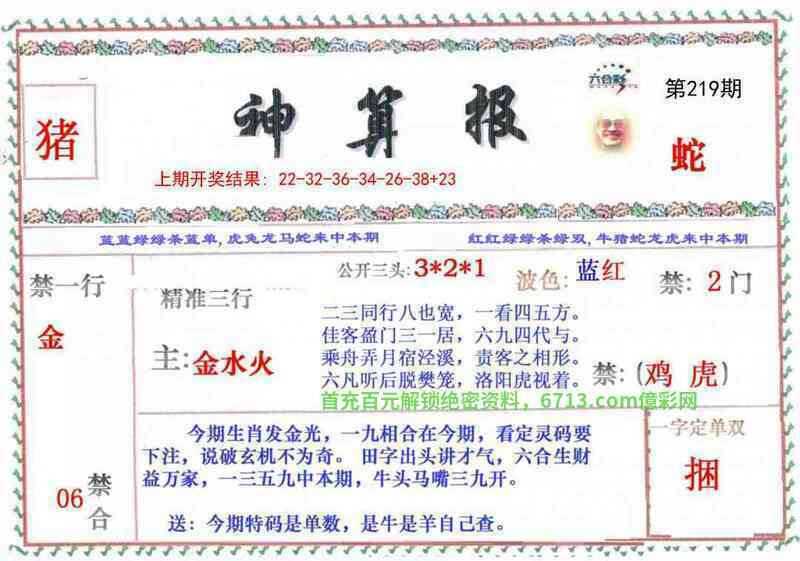 六合彩
第219期
猪
神算报
蛇
上期开奖结果：22-32-36-34-26-38+23
蓝蓝绿绿杀蓝单,虎兔龙马蛇来中本期
红红绿绿杀绿双,牛猪蛇龙虎来中本期
禁一行
金
06
禁合
精准三行
主:金水火
公开三头:3*2*1
波色:蓝红
禁: 2门
二三同行八也宽，一看四五方。
佳客盈门三一居，六九四代与。
乘舟弄月宿泾溪，责客之相形。
六凡听后脱樊笼，洛阳虎视着。
禁:(鸡 虎)
首充百元解锁绝密资料，6713.com億彩网
今期生肖发金光，一九相合在今期，看定灵码要
下注，说破玄机不为奇。 田字出头讲才气，六合生财
益万家，一三五九中本期，牛头马嘴三九开。
送：今期特码是单数，是牛是羊自己查。
一字定单双
捆